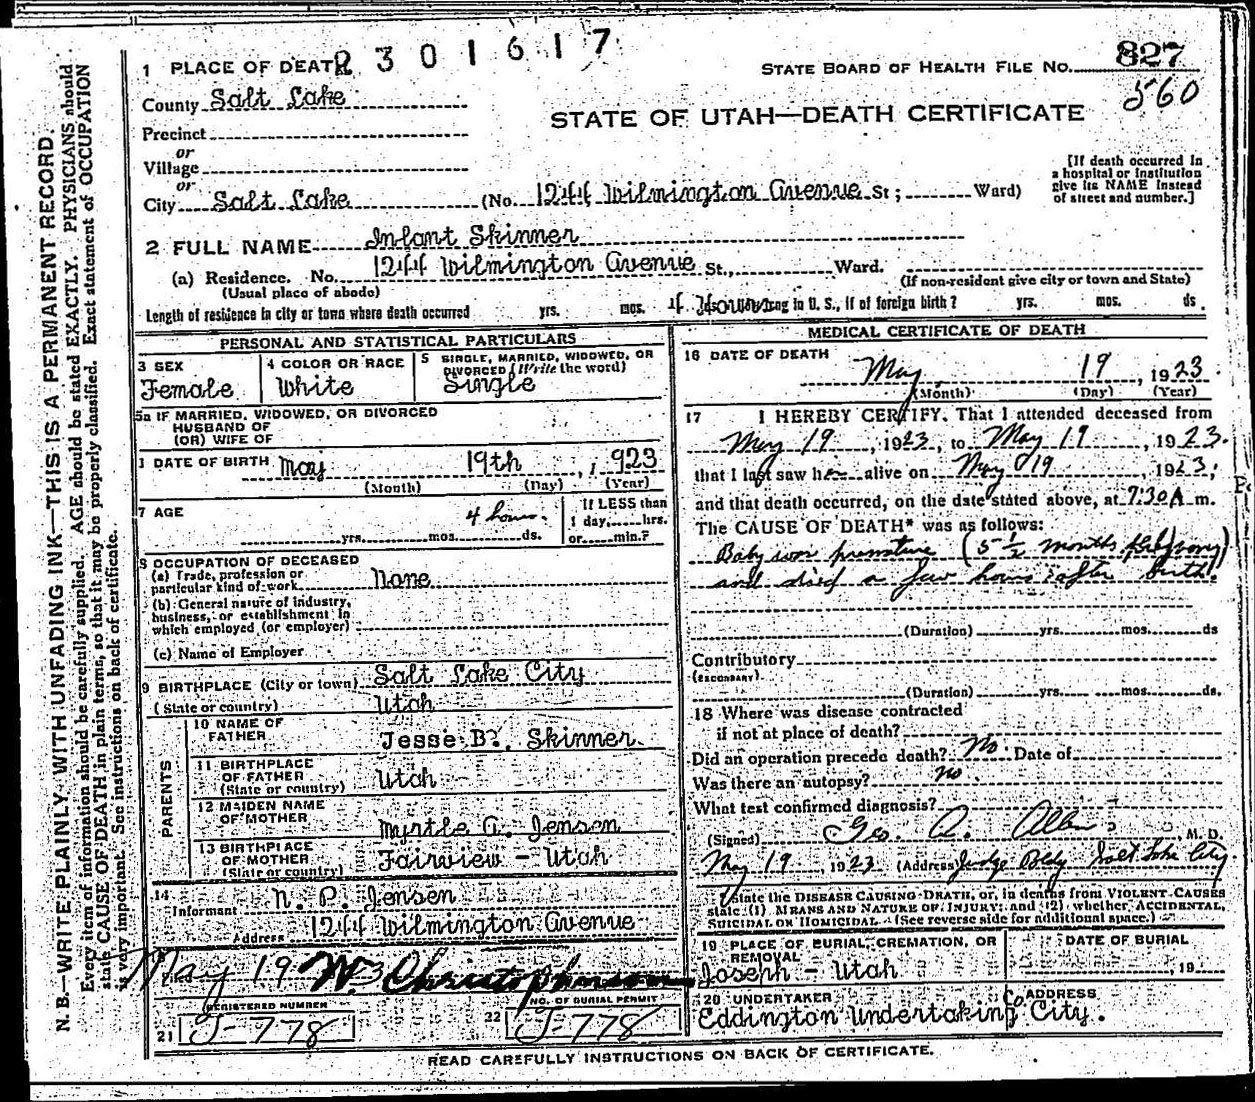 2301617
1 PLACE OF DEATH
STATE BOARD OF HEALTH FILE NO. 827
560
County Salt Lake
STATE OF UTAH—DEATH CERTIFICATE
Precinct
or
Village
or
City Salt Lake (No. 1244 Wilmington Avenue St; Ward)
[If death occurred in
a hospital or institution
give its NAME instead
of street and number.]
2 FULL NAME Infant Skinner
(a) Residence. No. 1244 Wilmington Avenue St., Ward.
(Usual place of abode)
(If non-resident give city or town and State)
Length of residence in city or town where death occurred yrs. mos. 4 Hours long in U. S., if of foreign birth? yrs. mos. ds.
PERSONAL AND STATISTICAL PARTICULARS
3 SEX
Female
4 COLOR OR RACE
White
5 SINGLE, MARRIED, WIDOWED, OR
DIVORCED (Write the word)
Single
5a IF MARRIED, WIDOWED, OR DIVORCED
HUSBAND OF
(OR) WIFE OF
DATE OF BIRTH May 19th, 1923
(Month) (Day) (Year)
7 AGE
4 hours.
yrs. mos. ds.
If LESS than
1 day, hrs.
or min.?
8 OCCUPATION OF DECEASED
(a) Trade, profession or
particular kind of work None
(b) General nature of industry,
business, or establishment in
which employed (or employer)
(c) Name of Employer
9 BIRTHPLACE (City or town) Salt Lake City
(State or country) Utah
PARENTS
10 NAME OF
FATHER Jesse B. Skinner
11 BIRTHPLACE
OF FATHER
(State or country) Utah
12 MAIDEN NAME
OF MOTHER Myrtle A. Jensen
13 BIRTHPLACE
OF MOTHER
(State or country) Fairview - Utah
14
Informant N. P. Jensen
Address 1244 Wilmington Avenue
May 19 W. Christophenson
REGISTERED NUMBER
21 J-778
NO. OF BURIAL PERMIT
22 J-778
MEDICAL CERTIFICATE OF DEATH
16 DATE OF DEATH
May 19, 1923
(Month) (Day) (Year)
17 I HEREBY CERTIFY, That I attended deceased from
May 19, 1923, to May 19, 1923.
that I last saw her alive on May 19 1923;
and that death occurred, on the date stated above, at 7:30 A m.
The CAUSE OF DEATH* was as follows:
Baby was premature (5 1/2 months pregnancy)
and died a few hours after birth.
(Duration) yrs. mos. ds
Contributory
(SECONDARY)
(Duration) yrs. mos. ds.
18 Where was disease contracted
if not at place of death?
Did an operation precede death? No Date of
Was there an autopsy? no.
What test confirmed diagnosis?
(Signed) Geo. A. Allen M. D.
May 19, 1923 (Address Judge Bldg Salt Lake City
State the DISEASE CAUSING DEATH, or, in deaths from VIOLENT CAUSES
state (1) MEANS AND NATURE OF INJURY; and (2) whether ACCIDENTAL,
SUICIDAL OR HOMICIDAL. (See reverse side for additional space.)
19 PLACE OF BURIAL, CREMATION, OR
REMOVAL
Joseph - Utah
DATE OF BURIAL
, 19
20 UNDERTAKER
Eddington Undertaking Co
ADDRESS
City.
READ CAREFULLY INSTRUCTIONS ON BACK OF CERTIFICATE.
N. B.—WRITE PLAINLY, WITH UNFADING INK—THIS IS A PERMANENT RECORD.
Every item of information should be carefully supplied. AGE should be stated EXACTLY. PHYSICIANS should
state CAUSE OF DEATH in plain terms, so that it may be properly classified. Exact statement of OCCUPATION
is very important. See instructions on back of certificate.